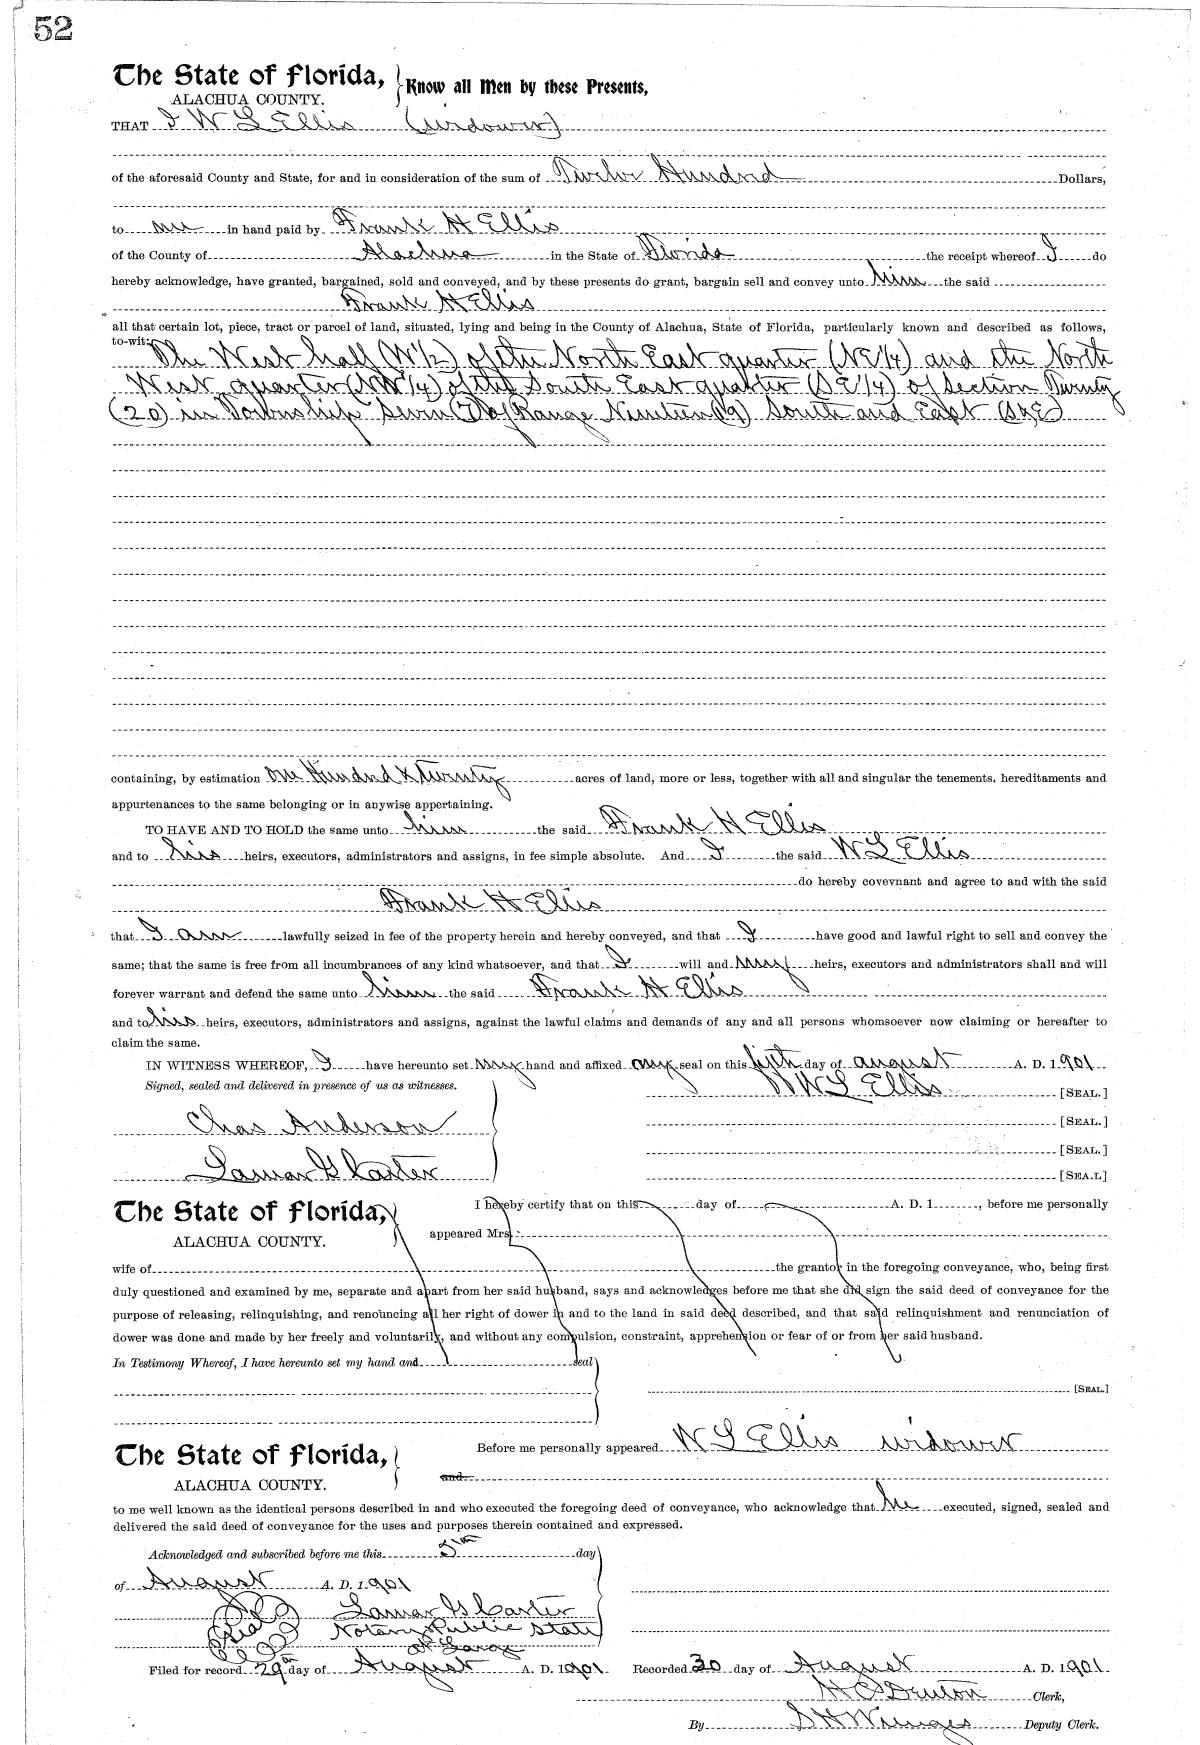 52
The State of Florida,
ALACHUA COUNTY.
Know all Men by these Presents,
THAT I W L Ellis (widower)
of the aforesaid County and State, for and in consideration of the sum of Twelve Hundred Dollars,
to me in hand paid by Frank H Ellis
of the County of Alachua in the State of Florida the receipt whereof I do
hereby acknowledge, have granted, bargained, sold and conveyed, and by these presents do grant, bargain sell and convey unto him the said
Frank H Ellis
all that certain lot, piece, tract or parcel of land, situated, lying and being in the County of Alachua, State of Florida, particularly known and described as follows,
to-wit:
The West half (W1/2) of the North East quarter (NE1/4) and the North
West quarter (NW1/4) of the South East quarter (SE1/4) of Section Twenty
(20) in Township Seven (7) of Range Nineteen (19) South and East (S&E)
containing, by estimation one Hundred & twenty acres of land, more or less, together with all and singular the tenements, hereditaments and
appurtenances to the same belonging or in anywise appertaining.
TO HAVE AND TO HOLD the same unto him the said Frank H Ellis
and to his heirs, executors, administrators and assigns, in fee simple absolute. And I the said W L Ellis
do hereby covevnant and agree to and with the said
Frank H Ellis
that I am lawfully seized in fee of the property herein and hereby conveyed, and that I have good and lawful right to sell and convey the
same; that the same is free from all incumbrances of any kind whatsoever, and that I will and my heirs, executors and administrators shall and will
forever warrant and defend the same unto him the said Frank H Ellis
and to his heirs, executors, administrators and assigns, against the lawful claims and demands of any and all persons whomsoever now claiming or hereafter to
claim the same.
IN WITNESS WHEREOF, I have hereunto set my hand and affixed my seal on this fifth day of august A. D. 1901
Signed, sealed and delivered in presence of us as witnesses.
W L Ellis [SEAL.]
Chas Anderson [SEAL.]
[SEAL.]
Lamar G Carter [SEA.L]
The State of Florida,
ALACHUA COUNTY.
I hereby certify that on this day of A. D. 1 , before me personally
appeared Mrs.
wife of the grantor in the foregoing conveyance, who, being first
duly questioned and examined by me, separate and apart from her said husband, says and acknowledges before me that she did sign the said deed of conveyance for the
purpose of releasing, relinquishing, and renouncing all her right of dower in and to the land in said deed described, and that said relinquishment and renunciation of
dower was done and made by her freely and voluntarily, and without any compulsion, constraint, apprehension or fear of or from her said husband.
In Testimony Whereof, I have hereunto set my hand and seal
[SEAL.]
The State of Florida,
ALACHUA COUNTY.
Before me personally appeared W L Ellis widower
and
to me well known as the identical persons described in and who executed the foregoing deed of conveyance, who acknowledge that he executed, signed, sealed and
delivered the said deed of conveyance for the uses and purposes therein contained and expressed.
Acknowledged and subscribed before me this 5th day
of August A. D. 1901
Lamar G Carter
Seal Notary Public State
at Large
Filed for record 29th day of August A. D. 1901 Recorded 30 day of August A. D. 1901
H C Denton Clerk,
By S H Wienges Deputy Clerk.